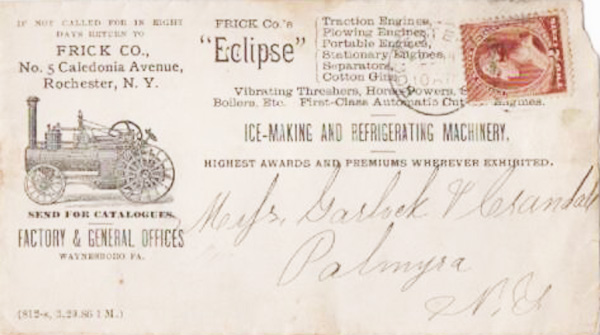 IF NOT CALLED FOR IN EIGHT
DAYS RETURN TO
FRICK CO.,
No. 5 Caledonia Avenue,
Rochester, N. Y.
SEND FOR CATALOGUES.
FACTORY & GENERAL OFFICES
WAYNESBORO PA.
(812-s, 3.29.86 1 M.)
FRICK Co.'s
"Eclipse"
Traction Engines,
Plowing Engines,
Portable Engines,
Stationary Engines,
Separators,
Cotton Gins,
Vibrating Threshers, Horse Powers,
Boilers, Etc. First-Class Automatic Engines.
ICE-MAKING AND REFRIGERATING MACHINERY.
HIGHEST AWARDS AND PREMIUMS WHEREVER EXHIBITED.
Messrs. Garlock & Crandall
Palmyra
N. Y.